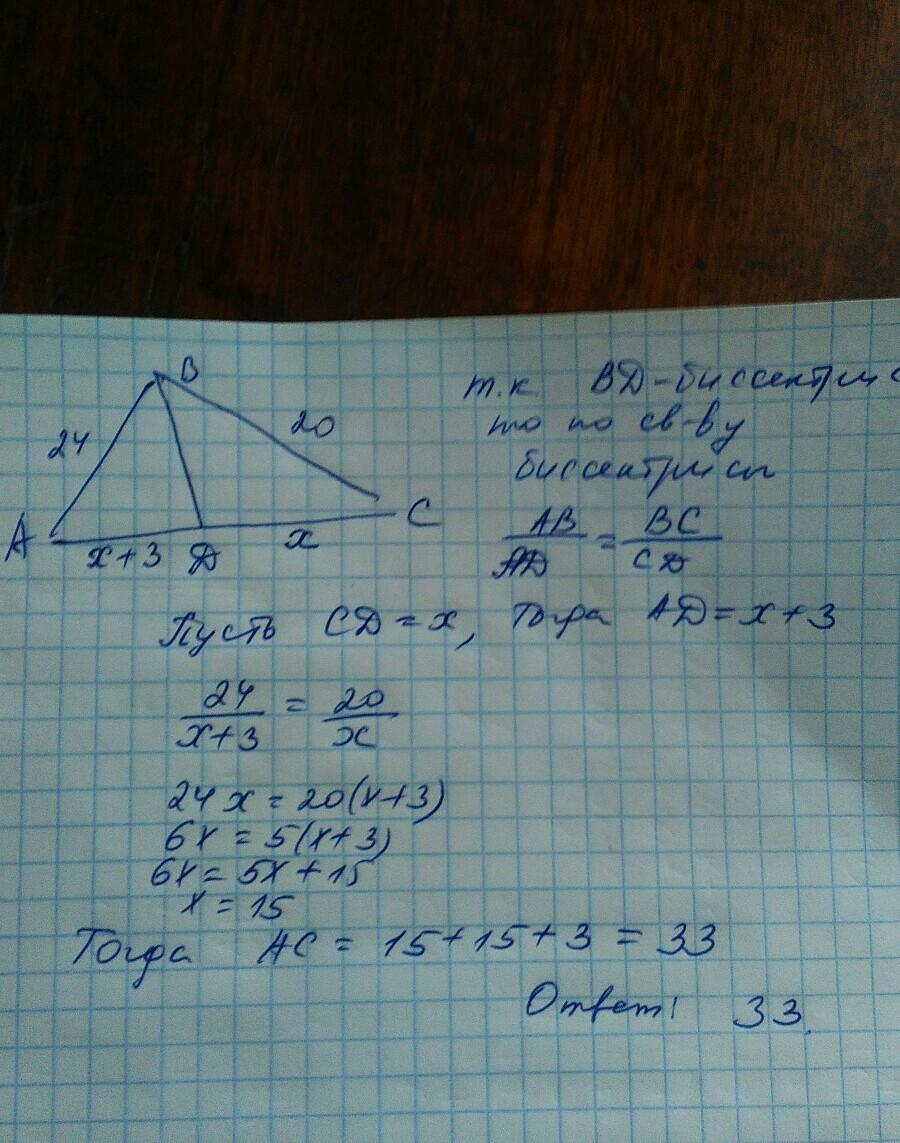 B
24
20
A
x+3
D
x
C
т.к. ВD-биссектрис
то по св-ву
биссектрисы
AB/AD = BC/CD
Пусть CD = x, Тогда AD = x+3
24/x+3 = 20/x
24x = 20(x+3)
6x = 5(x+3)
6x = 5x + 15
x = 15
Тогда AC = 15+15+3 = 33
Ответ: 33.